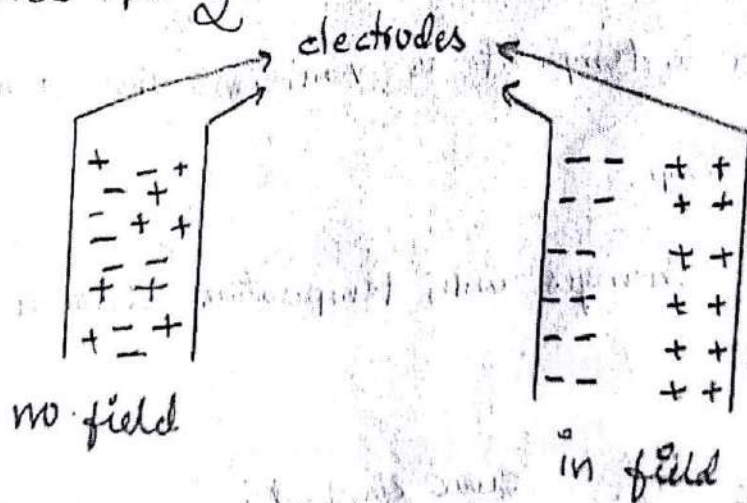 2
electrodes
+ - +
- +
- + +
-
- -
+ +
+ - +
-
- - + +
- - + +
- - + +
- - + +
- - + +
- - + +
no field
in field